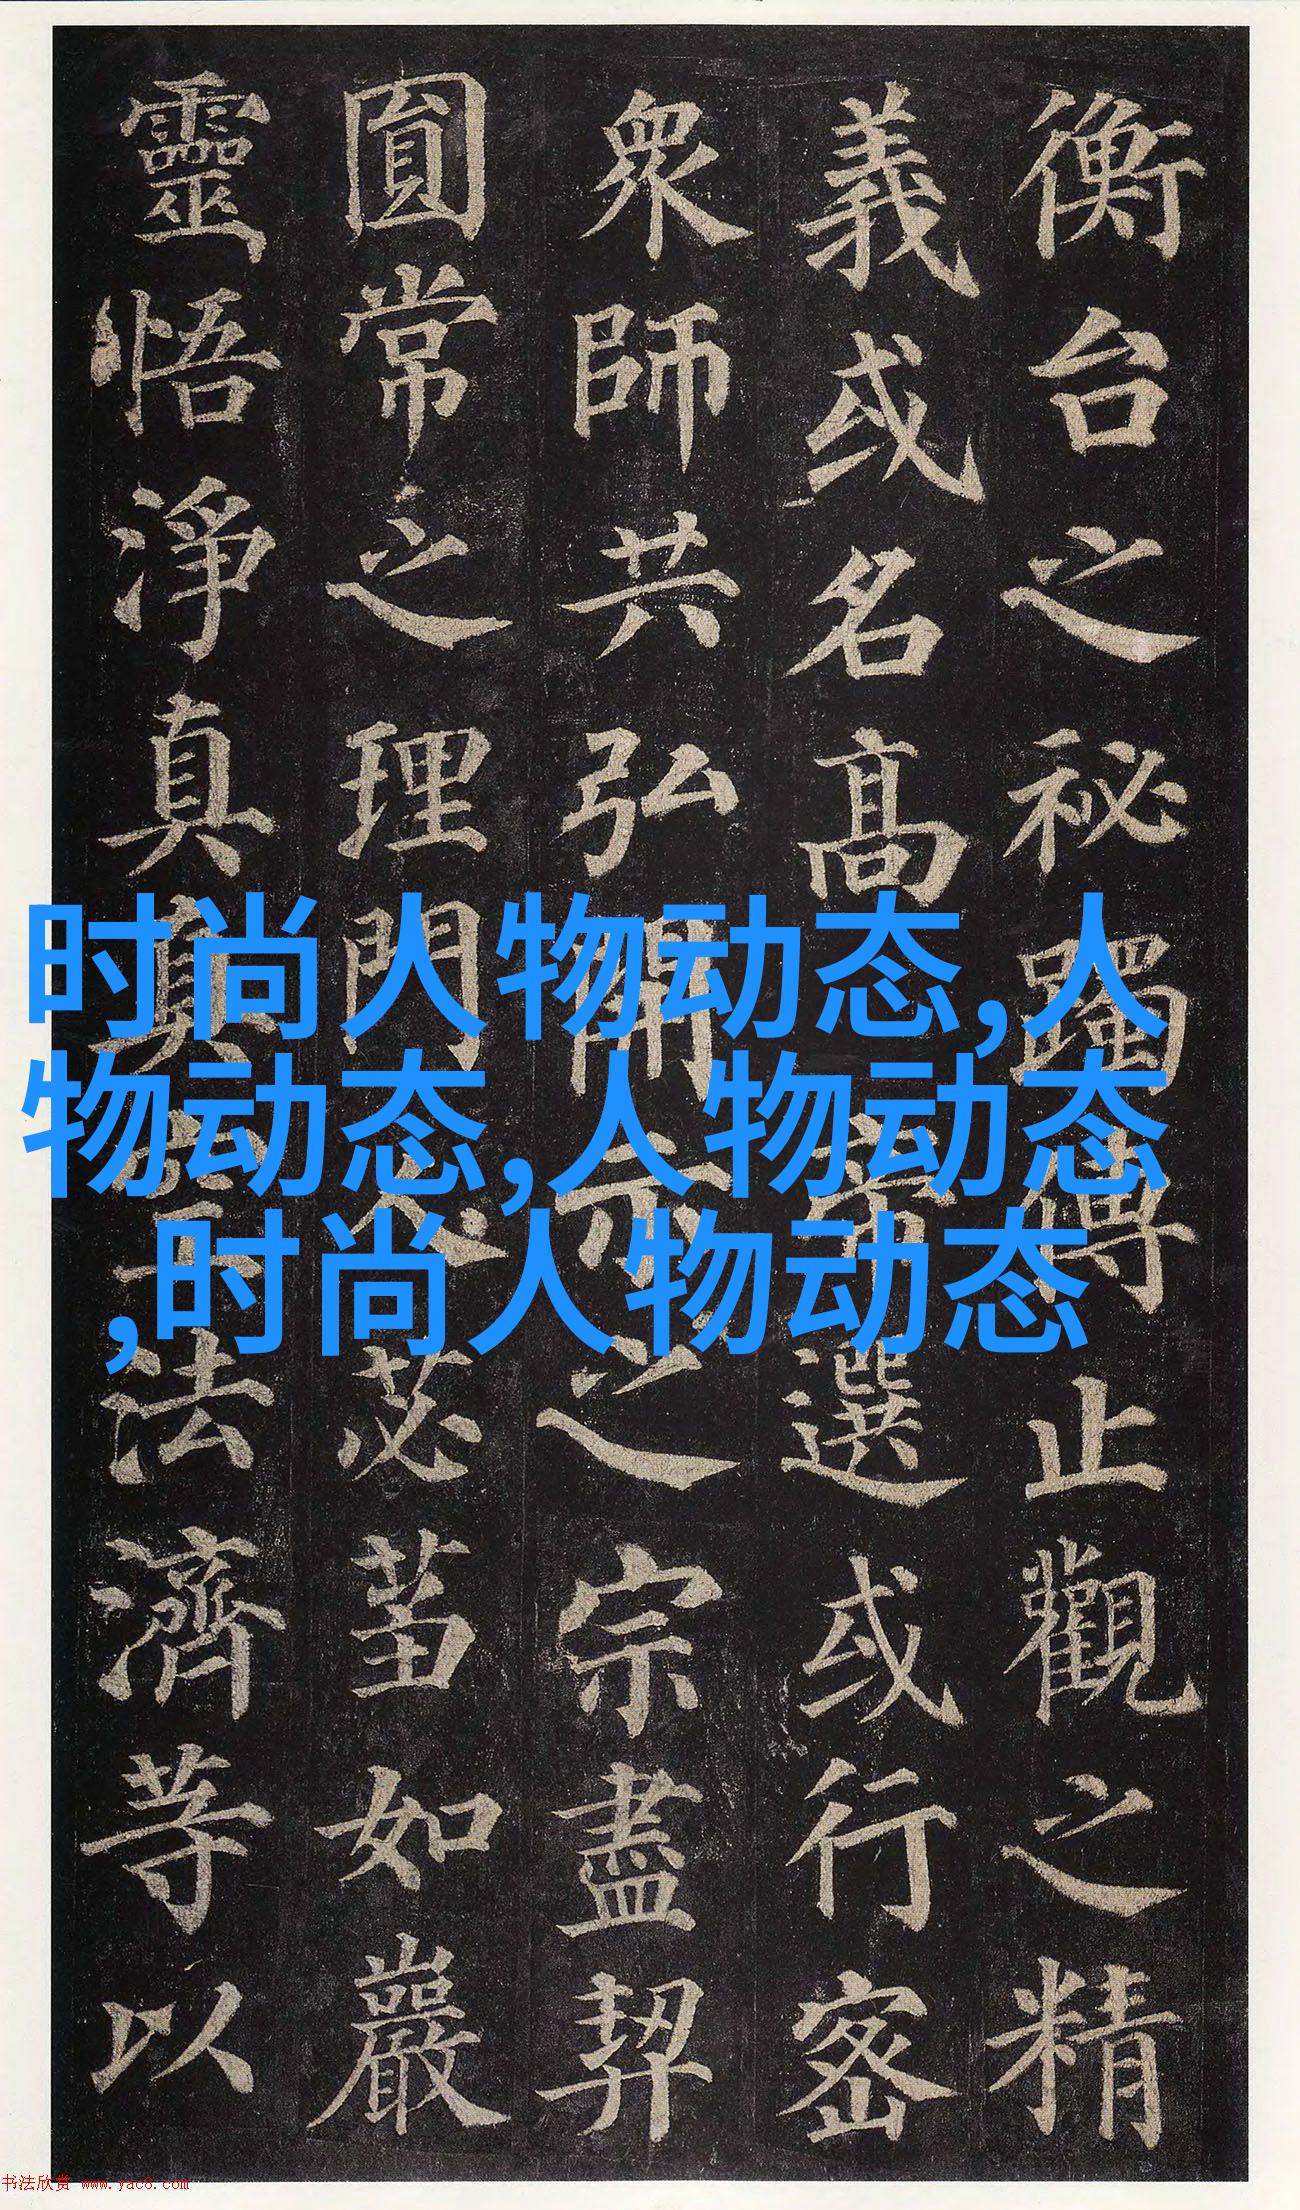 衡台之秘躅傳止觀之精
義或名高帝選或行密
衆師共弘開示之宗盡契
圓常之理門人苾芻如巖
靈悟淨真真空法濟等以
时尚人物动态,人
物动态,人物动态
,时尚人物动态
书法欣赏 www.yac8.com